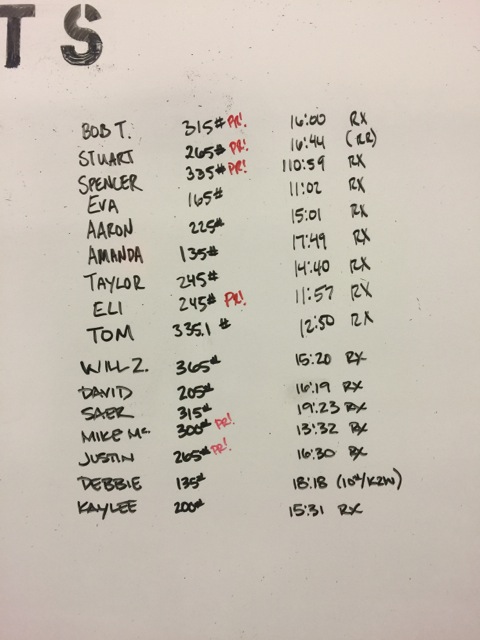 TS
BOB T. 315# PR! 16:00 RX
STUART 265# PR! 16:44 (RR)
SPENCER 335# PR! 110:59 RX
EVA 165# 11:02 RX
AARON 225# 15:01 RX
AMANDA 135# 17:49 RX
TAYLOR 245# 14:40 RX
ELI 245# PR! 11:57 RX
TOM 335.1 # 12:50 RX
WILL Z. 365# 15:20 RX
DAVID 205# 16:19 RX
SAER 315# 19:23 RX
MIKE Mc 300# PR! 13:32 RX
JUSTIN 265# PR! 16:30 RX
DEBBIE 135# 18:18 (10#/K2W)
KAYLEE 200# 15:31 RX